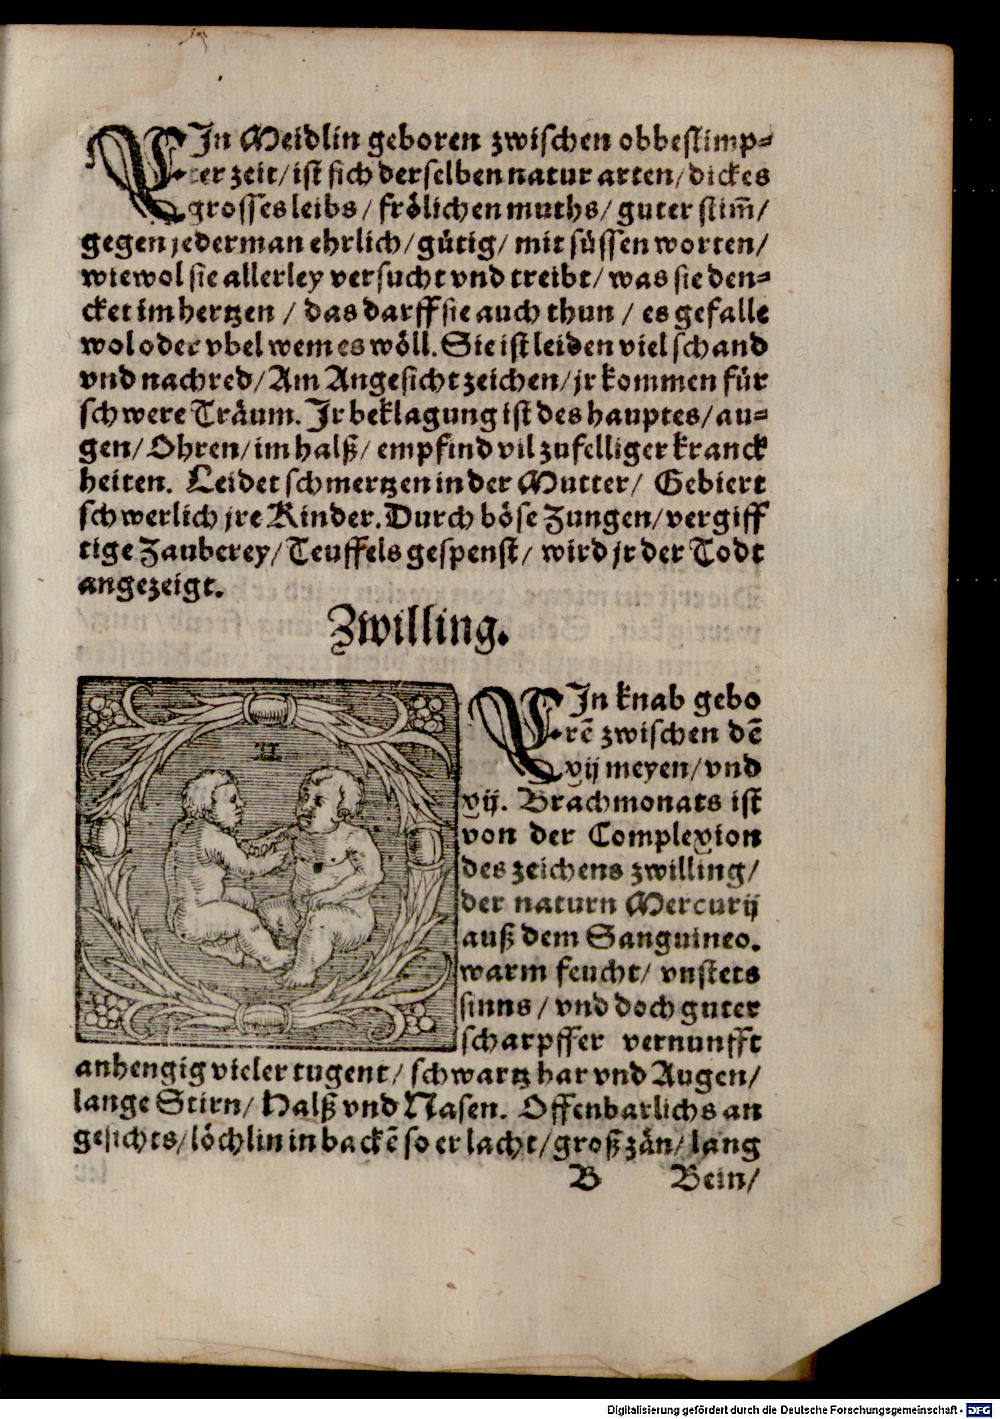 EIn Meidlin geboren zwischen obbestimp-
ter zeit/ ist sich derselben natur arten/ dickes
grosses leibs/ frölichen muths/ guter stim̃/
gegen jederman ehrlich/ gütig/ mit süssen worten/
wiewol sie allerley versucht vnd treibt/ was sie den-
cket im hertzen / das darff sie auch thun / es gefalle
wol oder vbel wem es wöll. Sie ist leiden viel schand
vnd nachred/ Am Angesicht zeichen/ jr kommen für
schwere Träum. Jr beklagung ist des hauptes/ au-
gen/ Ohren/ im halß/ empfind vil zufelliger kranck
heiten. Leidet schmertzen in der Mutter/ Gebiert
schwerlich jre Kinder. Durch böse Zungen/ vergiff
tige Zauberey/ Teuffels gespenst/ wird jr der Todt
angezeigt.
Zwilling.
♊
EIn knab gebo
rẽ zwischen dẽ
xij meyen/ vnd
xij. Brachmonats ist
von der Complexion
des zeichens zwilling/
der naturn Mercurij
auß dem Sanguineo.
warm feucht/ vnstets
sinns / vnd doch guter
scharpffer vernunfft
anhengig vieler tugent/ schwartz har vnd Augen/
lange Stirn/ Halß vnd Nasen. Offenbarlichs an
gesichts/ löchlin in backẽ so er lacht/ groß zän/ lang
B Bein/
Digitalisierung gefördert durch die Deutsche Forschungsgemeinschaft - DFG